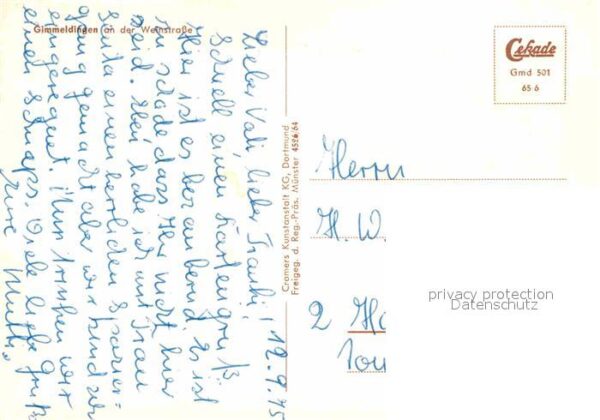 Gimmeldingen an der Weinstraße
12.9.75
Lieber Vati, lieber
Schnell einen Kartengruß
Hier ist es bezaubernd. Es ist
so schade dass Ihr nicht hier
seid. Hier habe ich mit Frau
einen herrlichen Spazier-
gang gemacht aber wir sind
eingeregnet. Nun trinken wir
einen Schnaps. Viele liebe Grüße
Eure Mutti.
Cramers Kunstanstalt KG, Dortmund
Freigeg. d. Reg.-Präs. Münster 4526/64
Cekade
Gmd 501
65 6
Herrn
H. W.
2 Ha
Tou
privacy protection
Datenschutz